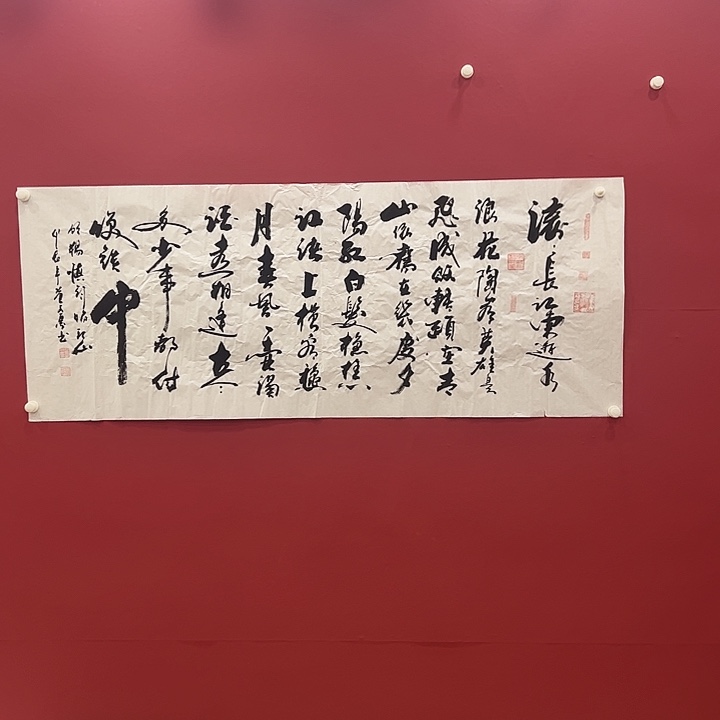 滚〻長江東逝水
浪花淘尽英雄是
非成敗轉頭空青
山依舊在幾度夕
陽紅白髮漁樵
江渚上慣看秋
月春風一壺濁
酒喜相逢古今
多少事都付
笑談中
明楊慎詞臨江仙
甲辰年董文書